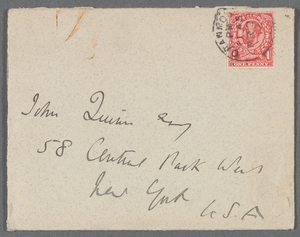 ONE PENNY
John Quinn Esq
58 Central Park West
New York
U.S.A